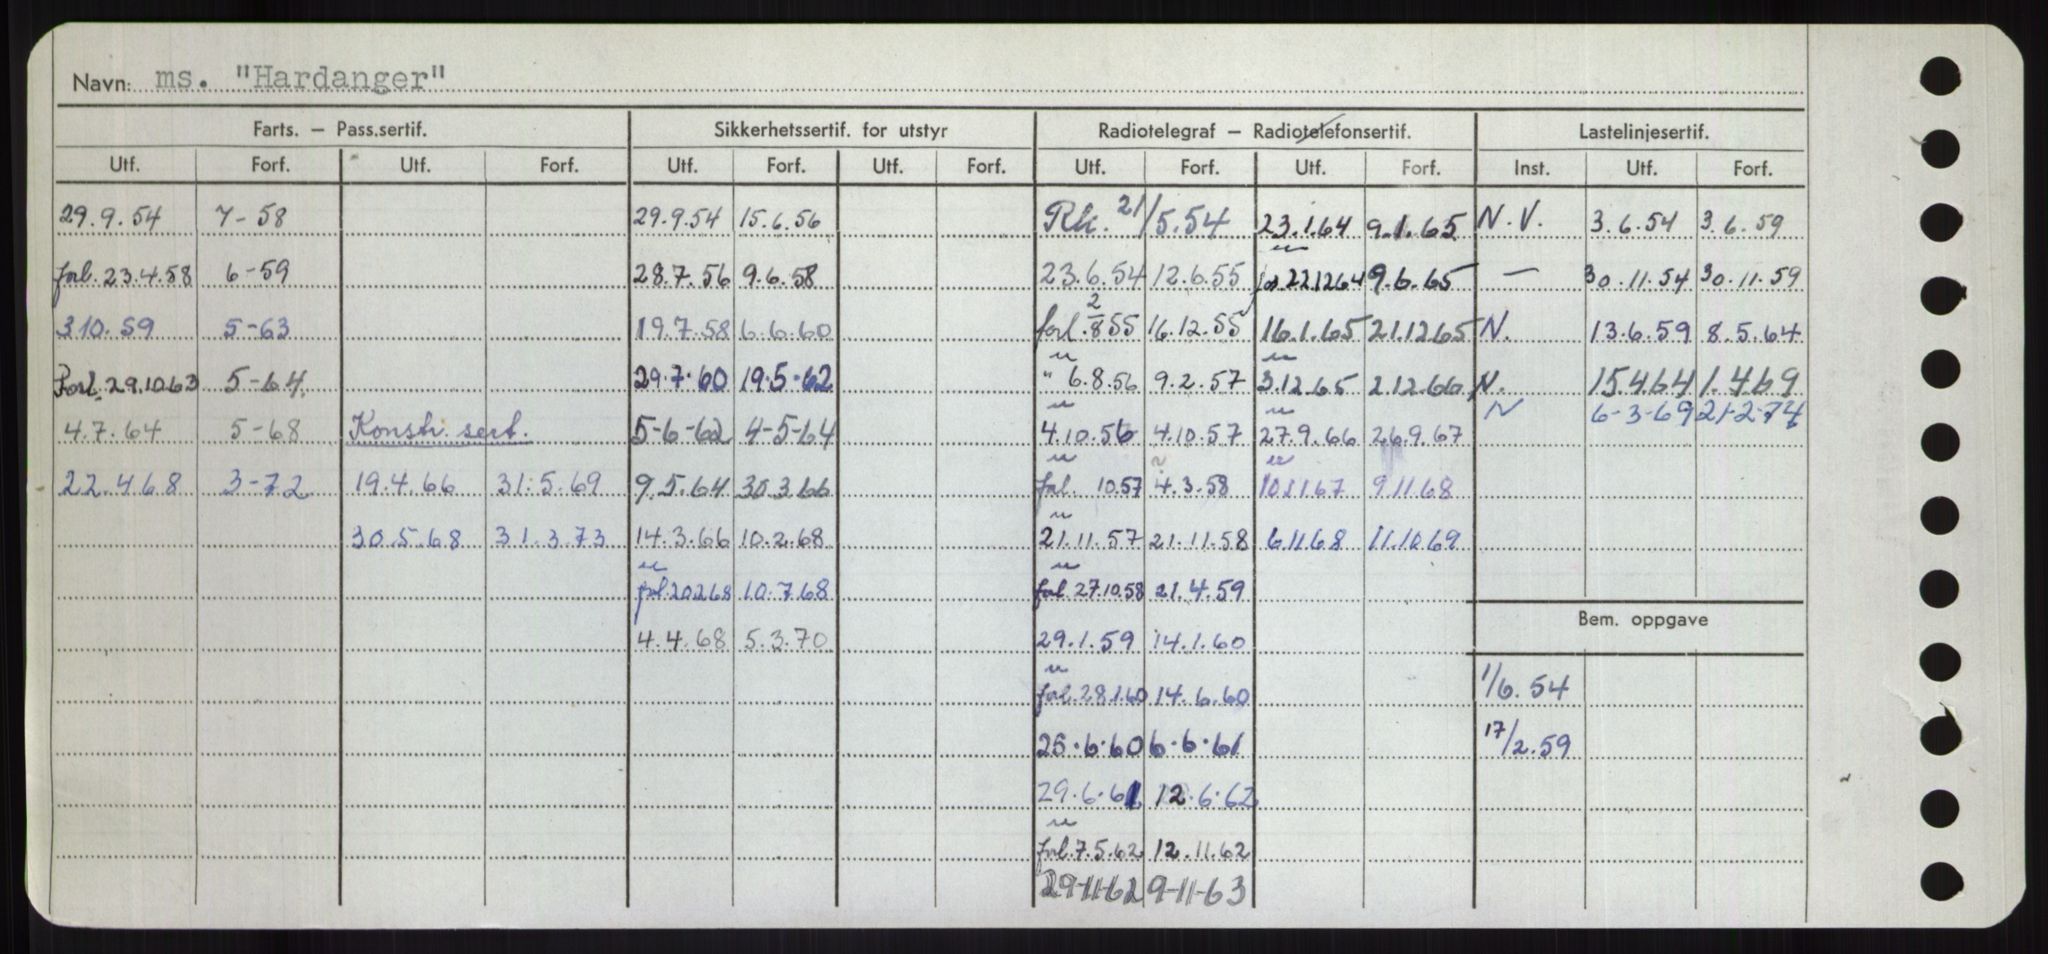 Navn: ms. "Hardanger"
Farts. — Pass.sertif. Sikkerhetssertif. for utstyr Radiotelegraf — Radiotelefonsertif. Lastelinjesertif.
Utf. Forf. Utf. Forf. Utf. Forf. Utf. Forf. Utf. Forf. Utf. Forf. Inst. Utf. Forf.
29.9.54 7-58 29.9.54 15.6.56 Rk. 21/5.54 23.1.64 9.1.65 N.V. 3.6.54 3.6.59
forl. 23.4.58 6-59 28.7.56 9.6.58 23.6.54 12.6.55 221264 9.6.65 — 30.11.54 30.11.59
3.10.59 5-63 19.7.58 6.6.60 forl. 2/8 55 16.12.55 16.1.65 21.12.65 N. 13.6.59 8.5.64
Forl. 29.10.63 5-64. 29.7.60 19.5-62 " 6.8.56 9.2.57 3.12.65 2.12.66 N. 15.4.64 1.4.69
N 6-3-69 21-2-74
4.7.64 5-68 Konstr. sert. 5-6-62 4-5-64 4.10.56 4.10.57 27.9.66 26.9.67
22.4.68 3-72 19.4.66 31.5.69 9.5.64 30.3.66 forl. 10.57 4.3.58 10.11.67 9.11.68
30.5.68 31.3.73 14.3.66 10.2.68 21.11.57 21.11.58 6.11.68 11.10.69
forl. 20.2.68 10.7.68 forl. 27.10.58 21.4.59
4.4.68 5.3.70 29.1.59 14.1.60
Bem. oppgave
forl. 28.1.60 14.6.60 1/6.54
25.6.60 6.6.61 17/2.59
29.6.61 12.6.62
forl. 7.5.62 12.11.62
29-11-62 9-11-63